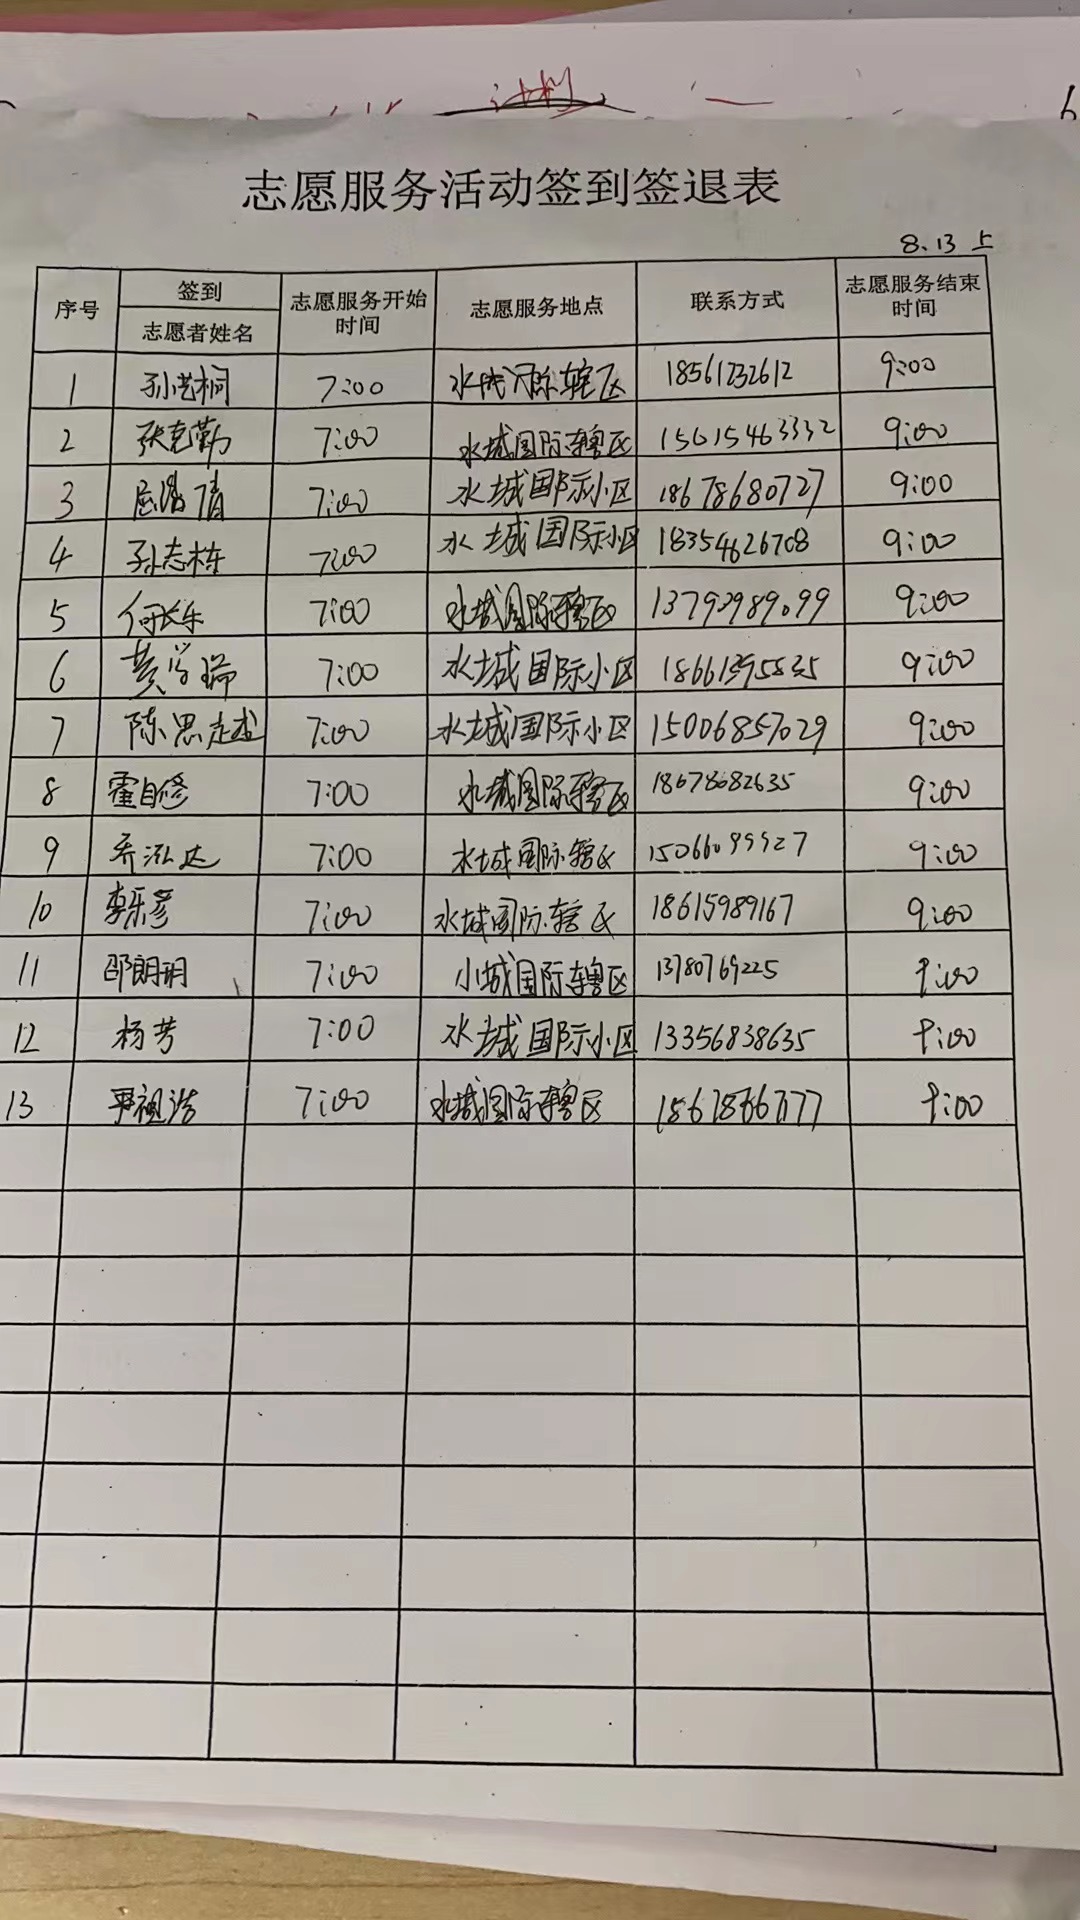 计划
志愿服务活动签到签退表
8.13 上
序号 签到 志愿者姓名 志愿服务开始时间 志愿服务地点 联系方式 志愿服务结束时间
1 孙艺桐 7:00 水城国际辖区 18561232612 9:00
2 张克勤 7:00 水城国际辖区 15615463332 9:00
3 7:00 水城国际小区 18678680727 9:00
4 孙志栋 7:00 水城国际小区 18354626708 9:00
5 何长乐 7:00 水城国际辖区 13793989099 9:00
6 黄学瑞 7:00 水城国际小区 9:00
7 陈思 7:00 水城国际小区 15006857029 9:00
8 霍自修 7:00 水城国际辖区 18678682635 9:00
9 乔泓达 7:00 水城国际辖区 9:00
10 李乐彦 7:00 水城国际辖区 18615989167 9:00
11 邵朗玥 7:00 小城国际辖区 13780769225 9:00
12 杨芳 7:00 水城国际小区 13356838635 9:00
13 7:00 水城国际辖区 9:00